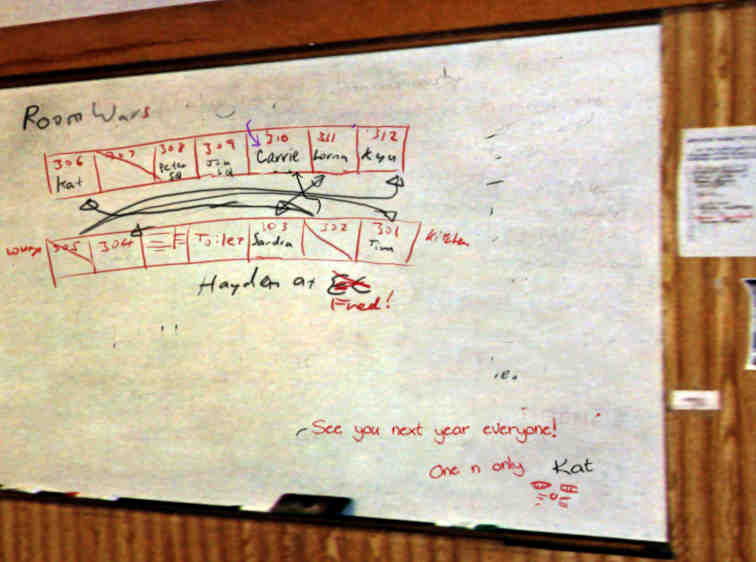 Room Wars
306 307 308 309 310 311 312
Kat Peter Jim Carrie Lorna Kyu
SQ SQ
Lounge 305 304 Toilet 303 302 301 Kitchen
Sandra Tim
Hayden at
Fred!
See you next year everyone!
One n only Kat